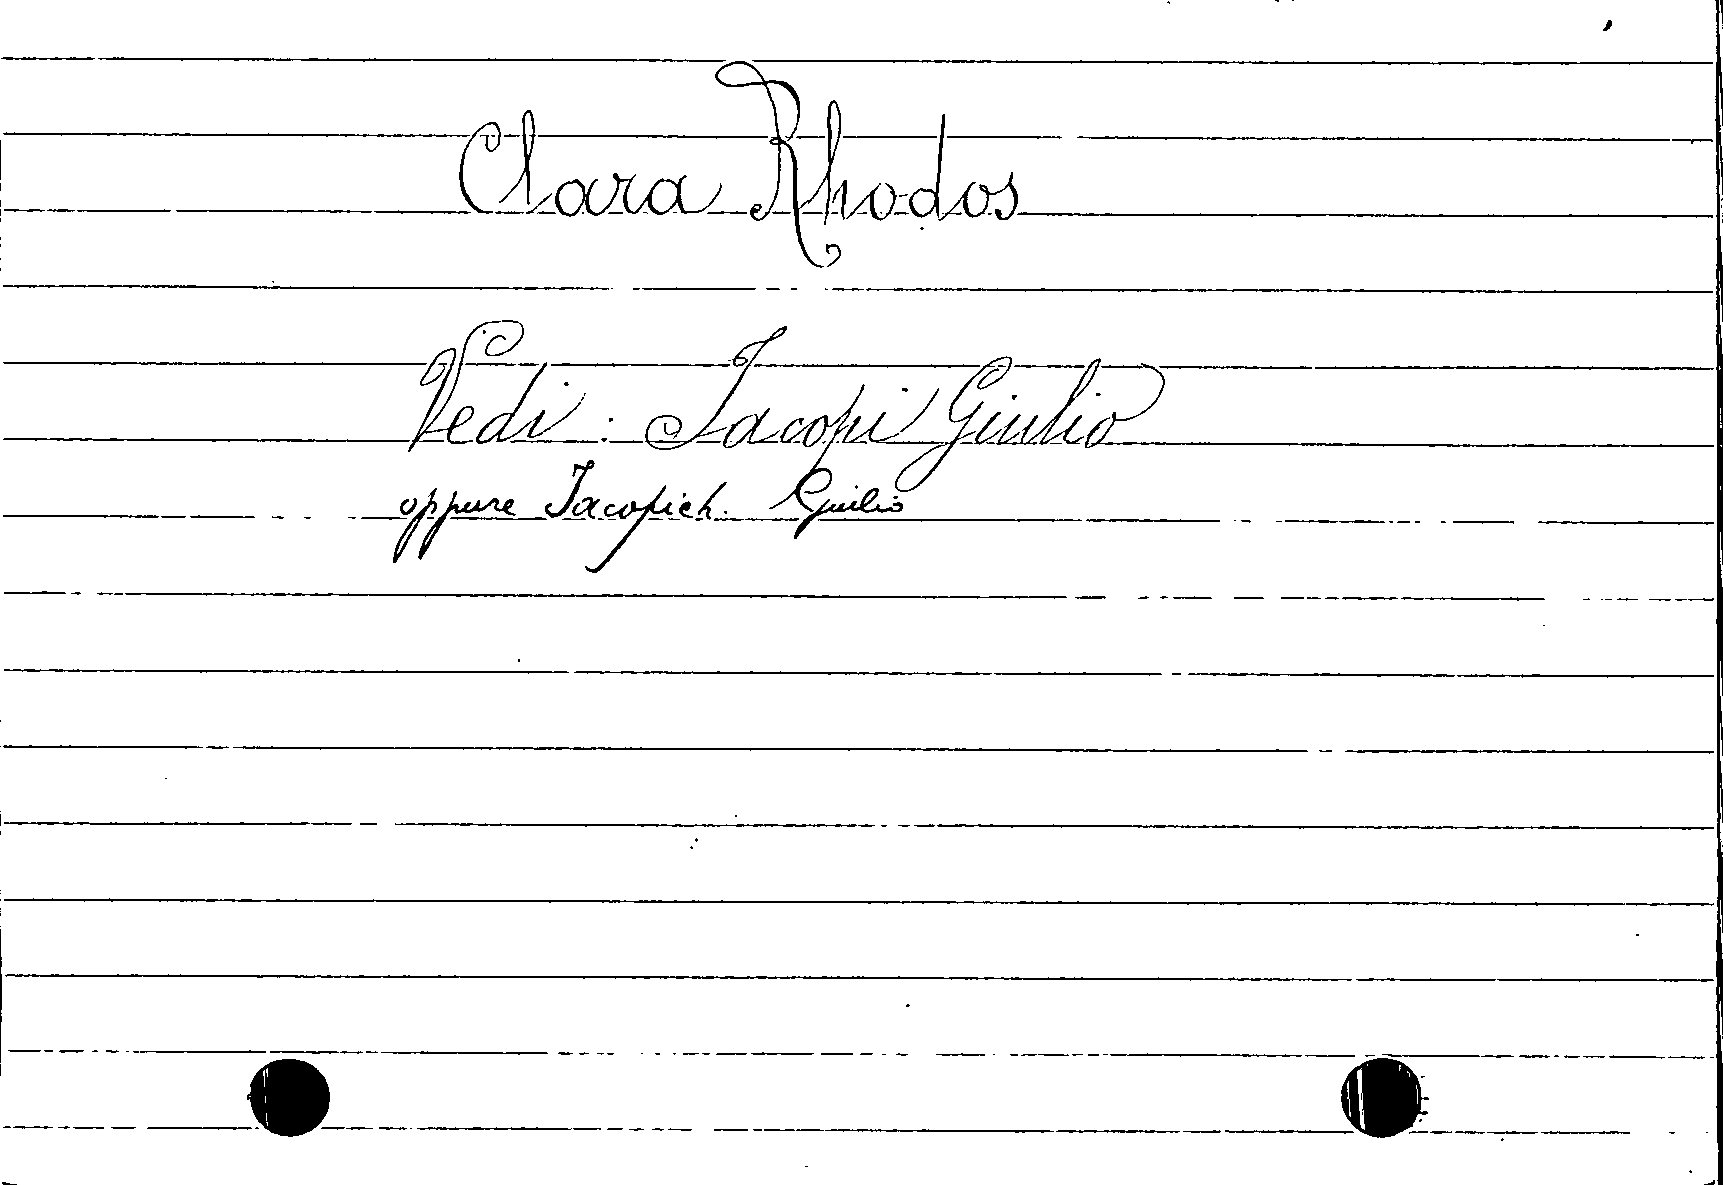 Clara Rhodos
Vedi : Jacopi Giulio
oppure Jacopich. Giulio